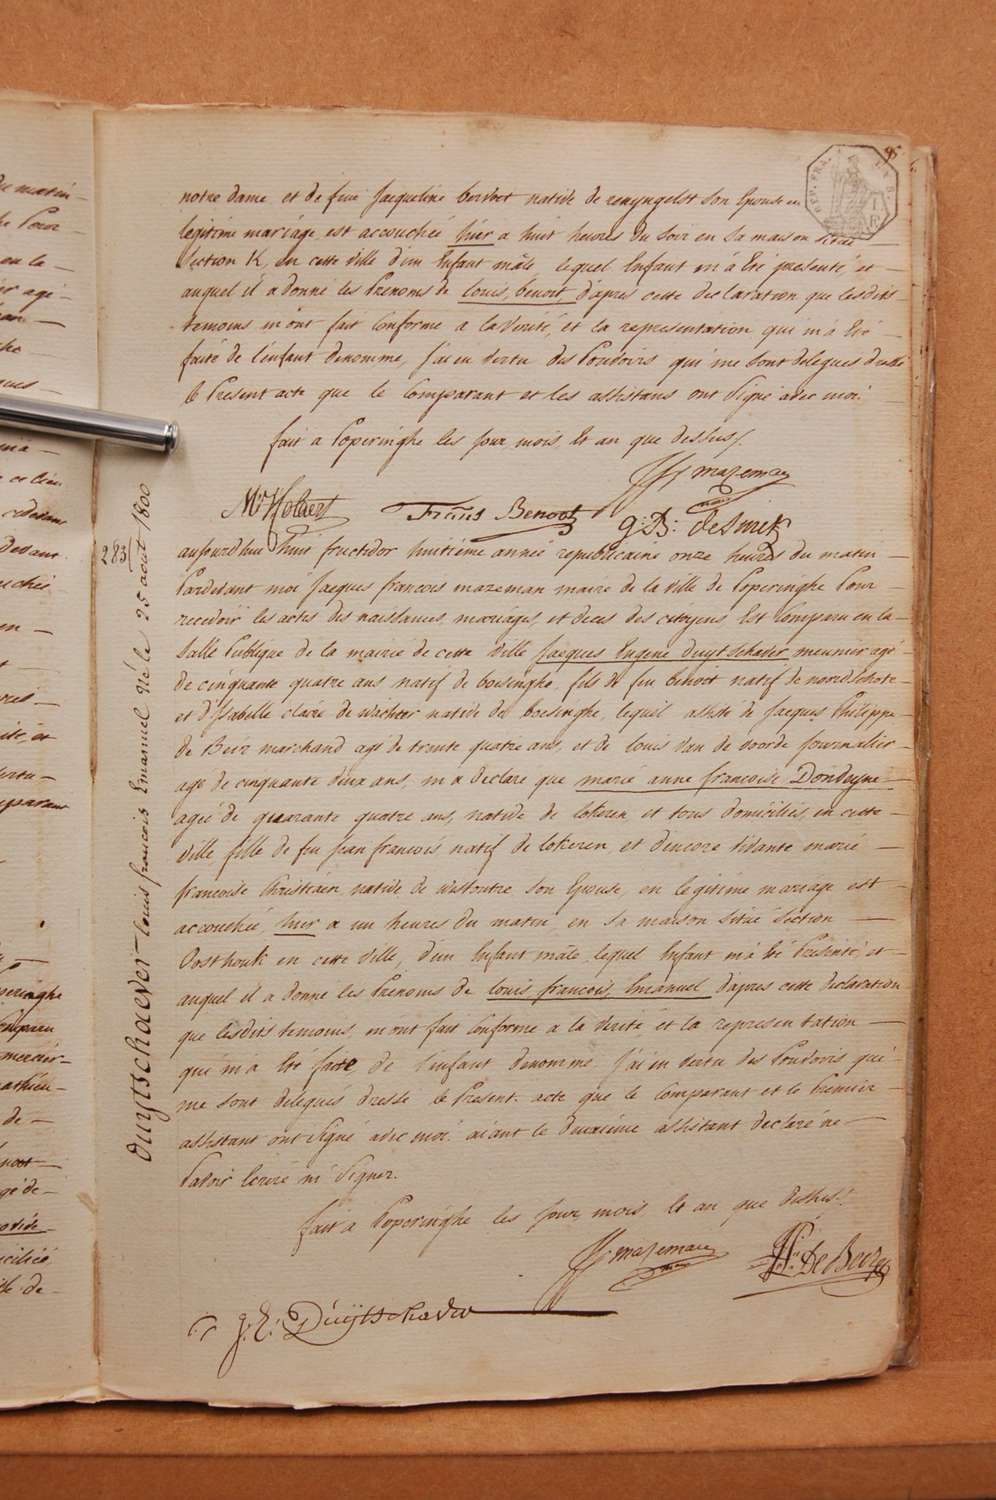 95
REP. FRA.
notre dame et de feue Jacqueline berbet native de renyngelst son Epouse en
legitime mariage est accouchée hier a huit heures du Soir en sa maison située
Section K, en cette ville d'un Enfant mâle lequel Enfant m'a Eté presenté et
auquel il a donné les Prenoms de louis, benoit, d'apres cette declaration que lesdits
temoins m'ont fait Conforme a la Verité, et la representation qui m'a Eté
faite de l'enfant denommé, J'ai en vertu des Pouvoirs qui me sont delegués dressé
le Present acte que le Comparant et les assistans ont Signé avec moi.
fait a Poperinghe les jour, mois, Et an que dessus/.
JF mazeman
Frans Benoot
g: B: desmet
283
aujourdhui huit fructidor huitième année republicaine onze heures du matin
Pardevant moi Jacques francois mazeman maire de la ville de Poperinghe Pour
recevoir les actes des naissances, mariages, et deces des citoyens Est Comparu en la
Salle Publique de la mairie de cette ville Jacques Eugene Duytschaver meunier agé
de cinquante quatre ans natif de boesinghe, fils de feu benoit natif de noordschote
et d'Isabelle claire de wachter native de boesinghe, lequel assisté de Jacques Philippe
de Beir marchand agé de trente quatre ans, et de louis van de voorde journalier
agé de cinquante deux ans, m'a declaré que marie anne francoise Dondeyne
agée de quarante quatre ans, native de lokeren et tous domiciliés en cette
ville fille de feu jean francois, natif de lokeren, et d'encore vivante marie
francoise Christiaen native de westoutre son Epouse, en legitime mariage est
accouchée, hier a un heures du matin en sa maison situé Section
Oosthouk en cette ville, d'un Enfant mâle, lequel Enfant m'a Eté Presenté, et
auquel il a donné les Prenoms de louis francois, Emanuel d'apres cette declaration
que lesdits temoins m'ont fait Conforme a la Verité et la representation
qui m'a Eté faite de l'enfant denommé J'ai en vertu des Pouvoirs qui
me sont delegués dressé le Present acte que le Comparant et le Premier
assistant ont Signé avec moi aiant le deuxième assistant declaré ne
Savoir Ecrire ni Signer.
fait a Poperinghe les jour, mois Et an que dessus/.
JF mazeman
De Beir
J: E: Duytschaver
duytschaever louis francois Emanuel Né le 25 août 1800